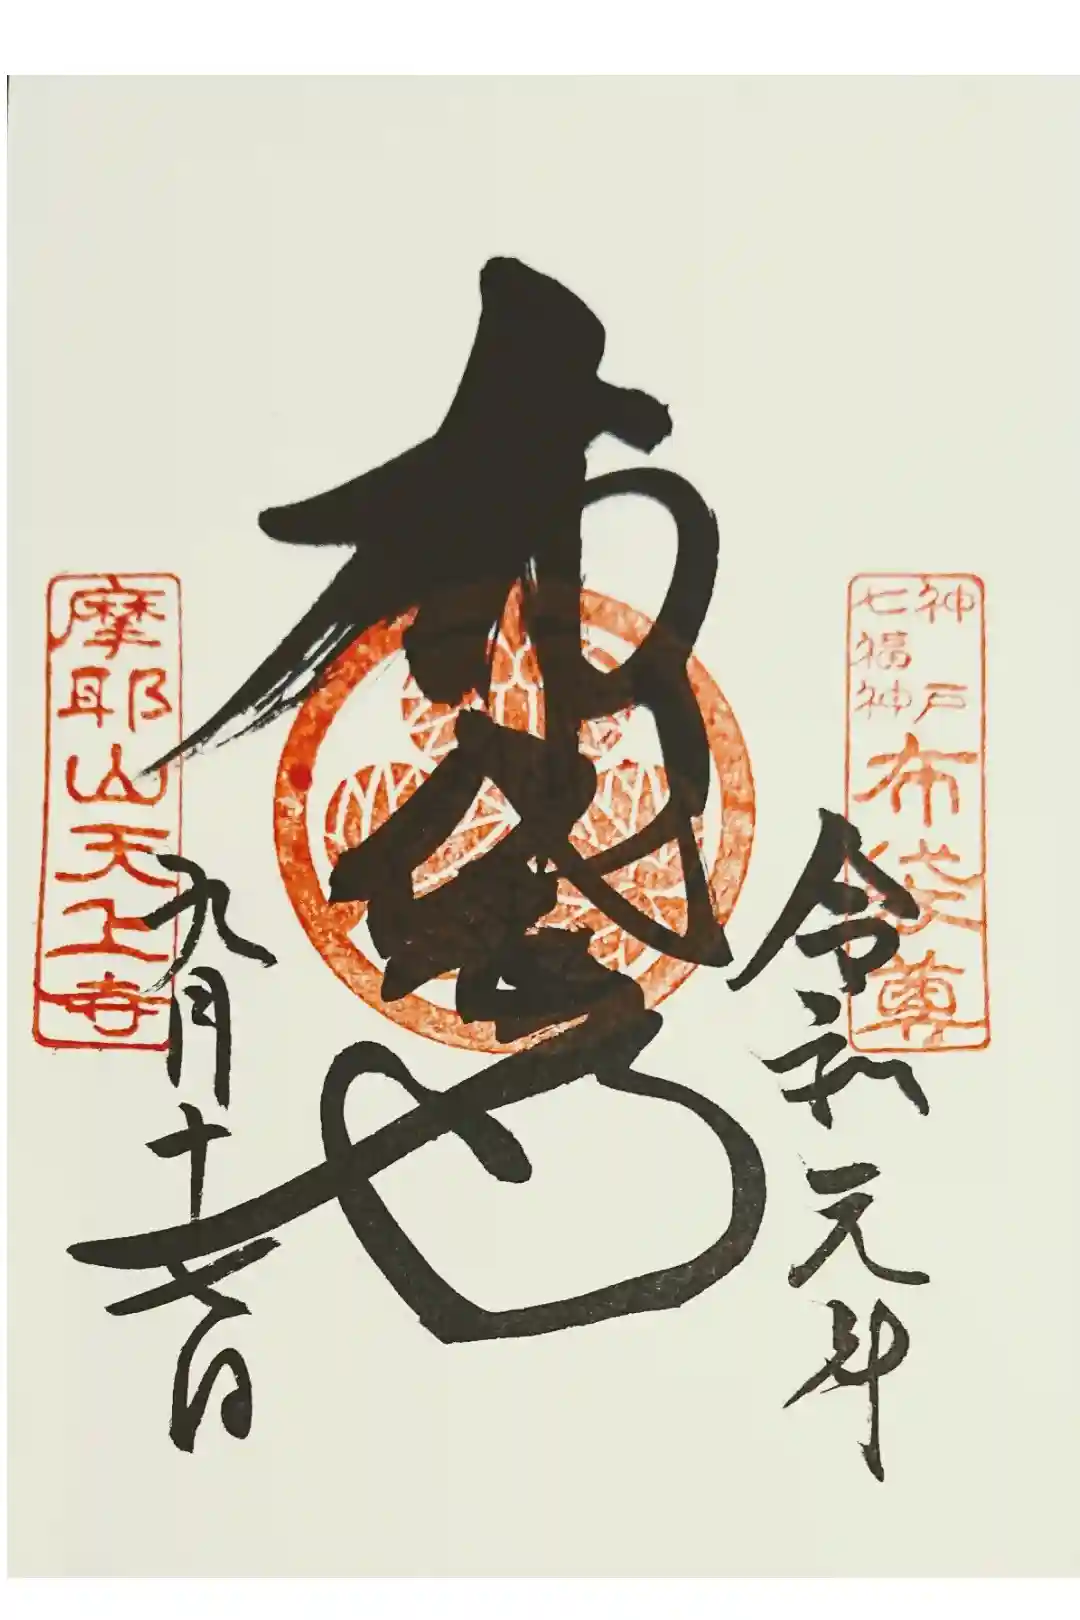 令和元年
神戸
七福神
布袋尊
布袋尊
九月十日
摩耶山天上寺